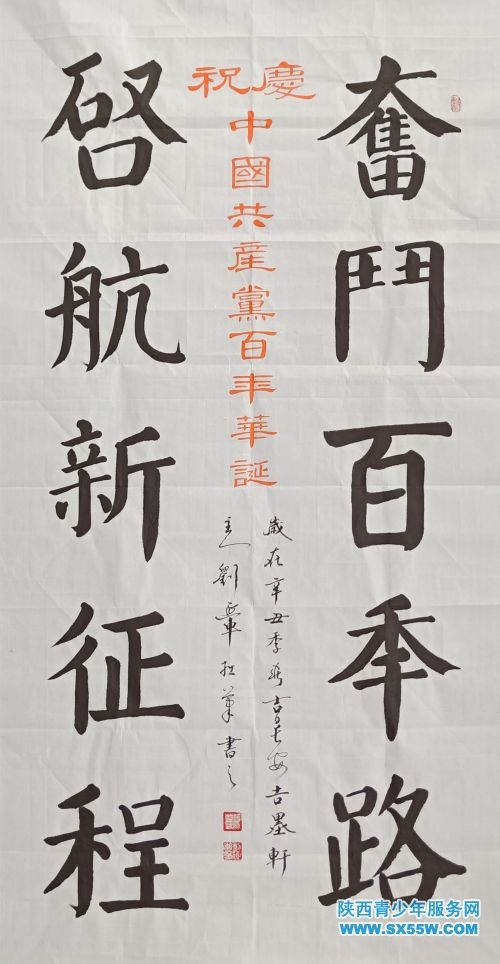 奮鬥百秊路
慶祝
中國共産黨百年華誕
歲在辛丑季春吉長安吉墨軒
主人劉筆書之
啓航新征程
陕西青少年服务网
WWW.SX55W.COM